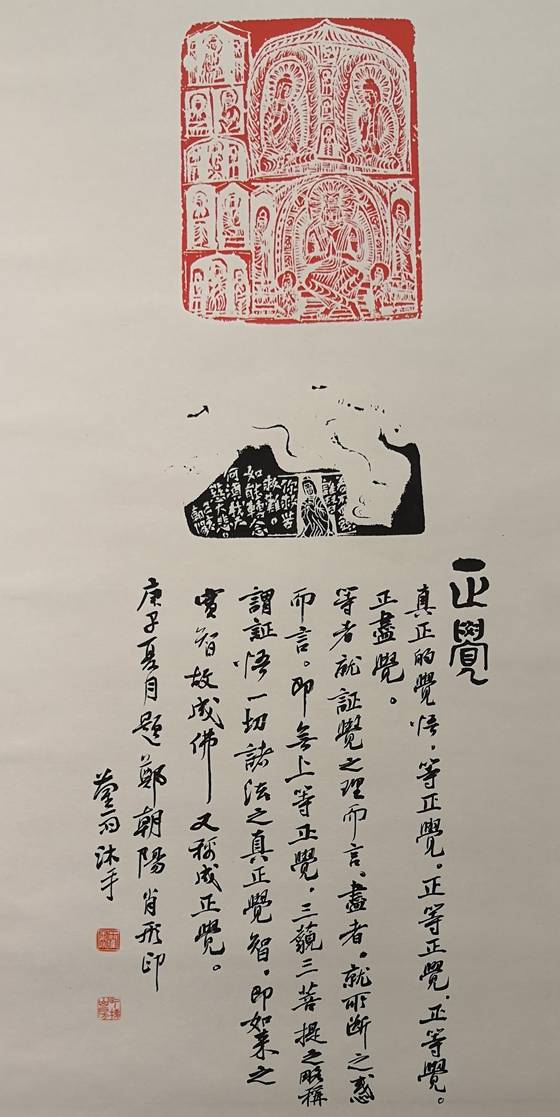 正覺
真正的覺悟，等正覺。正等正覺，正等覺。
正盡覺。
等者就証覺之理而言，盡者，就所斷之惑
而言。即無上等正覺，三藐三菩提之略稱
謂証悟一切諸法之真正覺智，即如来之
實智故成佛又稱成正覺。
庚子夏月題鄭朝陽肖形印
沐手
你救苦
救難。
如能轉念
何須我大
慈大悲。